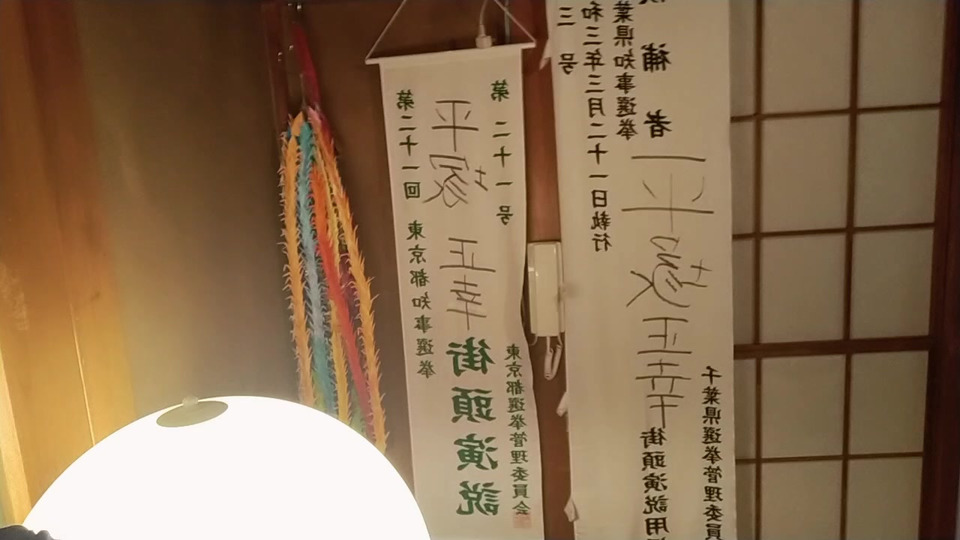 第二十一回 東京都知事選挙
平塚 正幸 街頭演説
第二十一号
東京都選挙管理委員会
三号
和三年三月二十一日執行
葉県知事選挙
補者 平塚正幸 街頭演説用
千葉県選挙管理委員